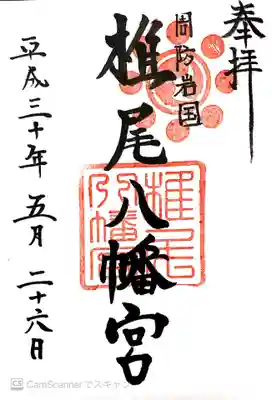 奉拝
周防岩国
椎尾八幡宮
椎尾八幡宮
平成三十年 五月 二十六日
CS CamScanner でスキャン